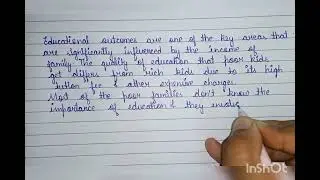 Educational outcomes are one of the key areas that
are significantly influenced by the income of
family. The quality of education that poor kids
get differs from rich kids due to its high
tution fee & other expensive charges.
Most of the poor families don't know the
importance of education & they involve
InShot